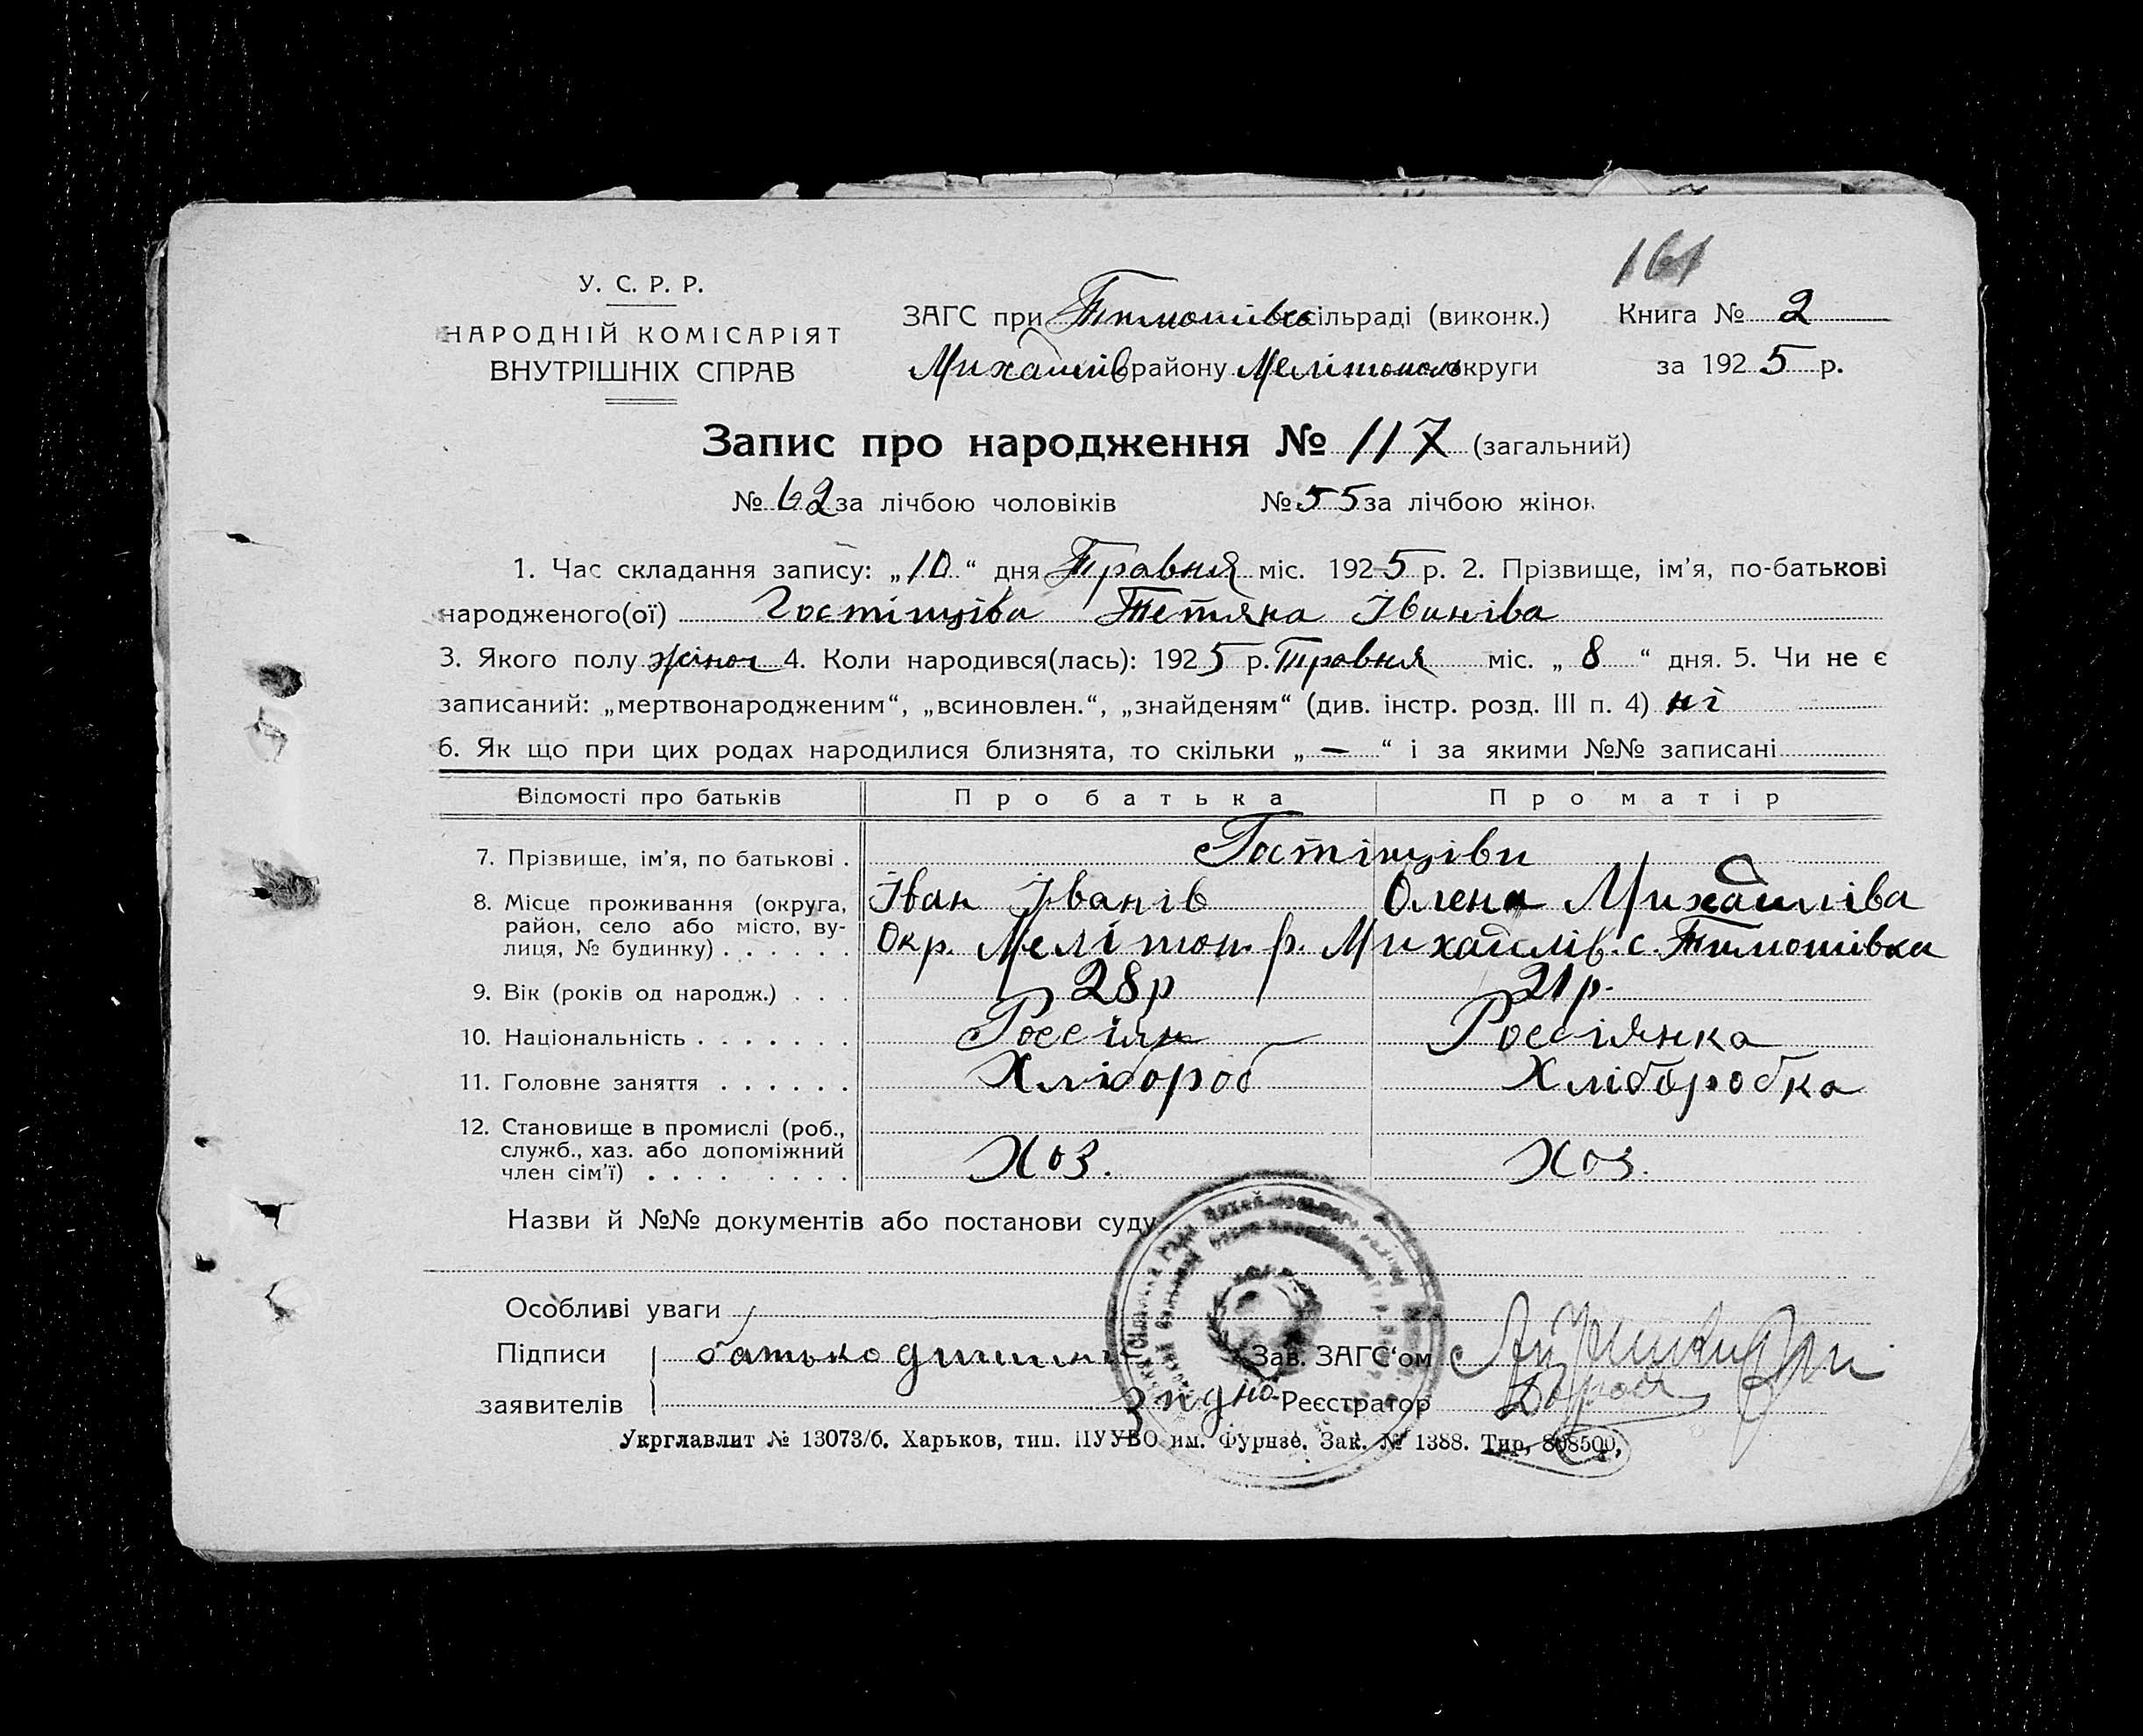 161
У. С. Р. Р.
НАРОДНІЙ КОМІСАРІЯТ
ВНУТРІШНІХ СПРАВ
ЗАГС при Тимошівка сільраді (виконк.)
Михайлів району Мелітополь округи
Книга № 2
за 1925 р.
Запис про народження № 117 (загальний)
№ 62 за лічбою чоловіків № 55 за лічбою жінок
1. Час складання запису: „10“ дня Травня міс. 1925 р. 2. Прізвище, ім’я, по-батькові
народженого(ої) Гостіщіва Тетяна Іваніва
3. Якого полу жіноч 4. Коли народився(лась): 1925 р. Травня міс. „ 8 “ дня. 5. Чи не є
записаний: „мертвонародженим“, „всиновлен.“, „знайденям“ (див. інстр. розд. III п. 4) ні
6. Як що при цих родах народилися близнята, то скільки „ — “ і за якими №№ записані
Відомості про батьків Про батька Про матір
7. Прізвище, ім’я, по батькові . Гостіщіви
8. Місце проживання (округа, Іван Іванів Олена Михайліва
район, село або місто, ву-
лиця, № будинку) . . . . . . Окр. Мелітоп. р. Михайлів. с. Тимошівка
9. Вік (років од народж.) . . . 28 р 21 р.
10. Національність . . . . . . . Россіян Россіянка
11. Головне заняття . . . . . . Хлібороб Хлiборобка
12. Становище в промислі (роб.,
служб., хаз. або допоміжний Хоз. Хоз.
член сім’ї) . . . . . . . .
Назви й №№ документів або постанови суду
Особливі уваги
Підписи батько Зав. ЗАГС‘ом
заявителів Реєстратор
Укрглавлит № 13073/б. Харьков, тип. ПУУВО им. Фурнзе. Зак. № 1388. Тир. 808500,